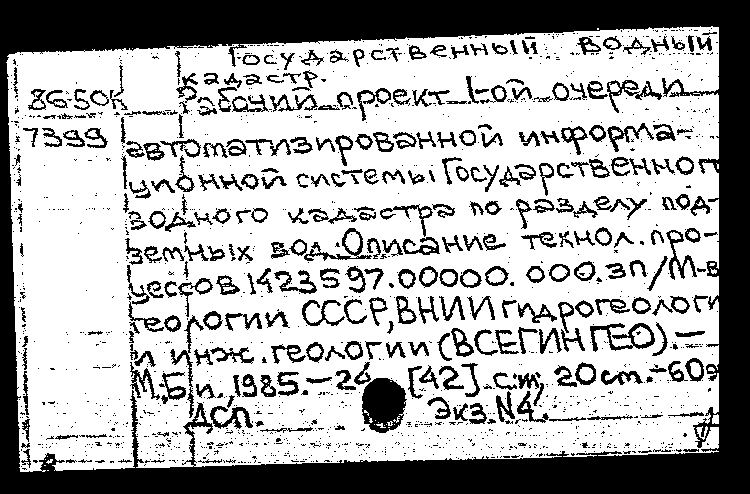 Государственный водный
кадастр.
86-50К Рабочий проект I-ой очереди
7399 автоматизированной информа-
ционной системы Государственног
водного кадастра по разделу под-
земных вод. Описание технол. про-
цессов 1423597.00000.000.зп/М-в
геологии СССР, ВНИИ гидрогеологи
и инж. геологии (ВСЕГИНГЕО).—
М.: Б.и. 1985.-24 [42] с.: 20 см.-60э
ДСП. Экз. N4.